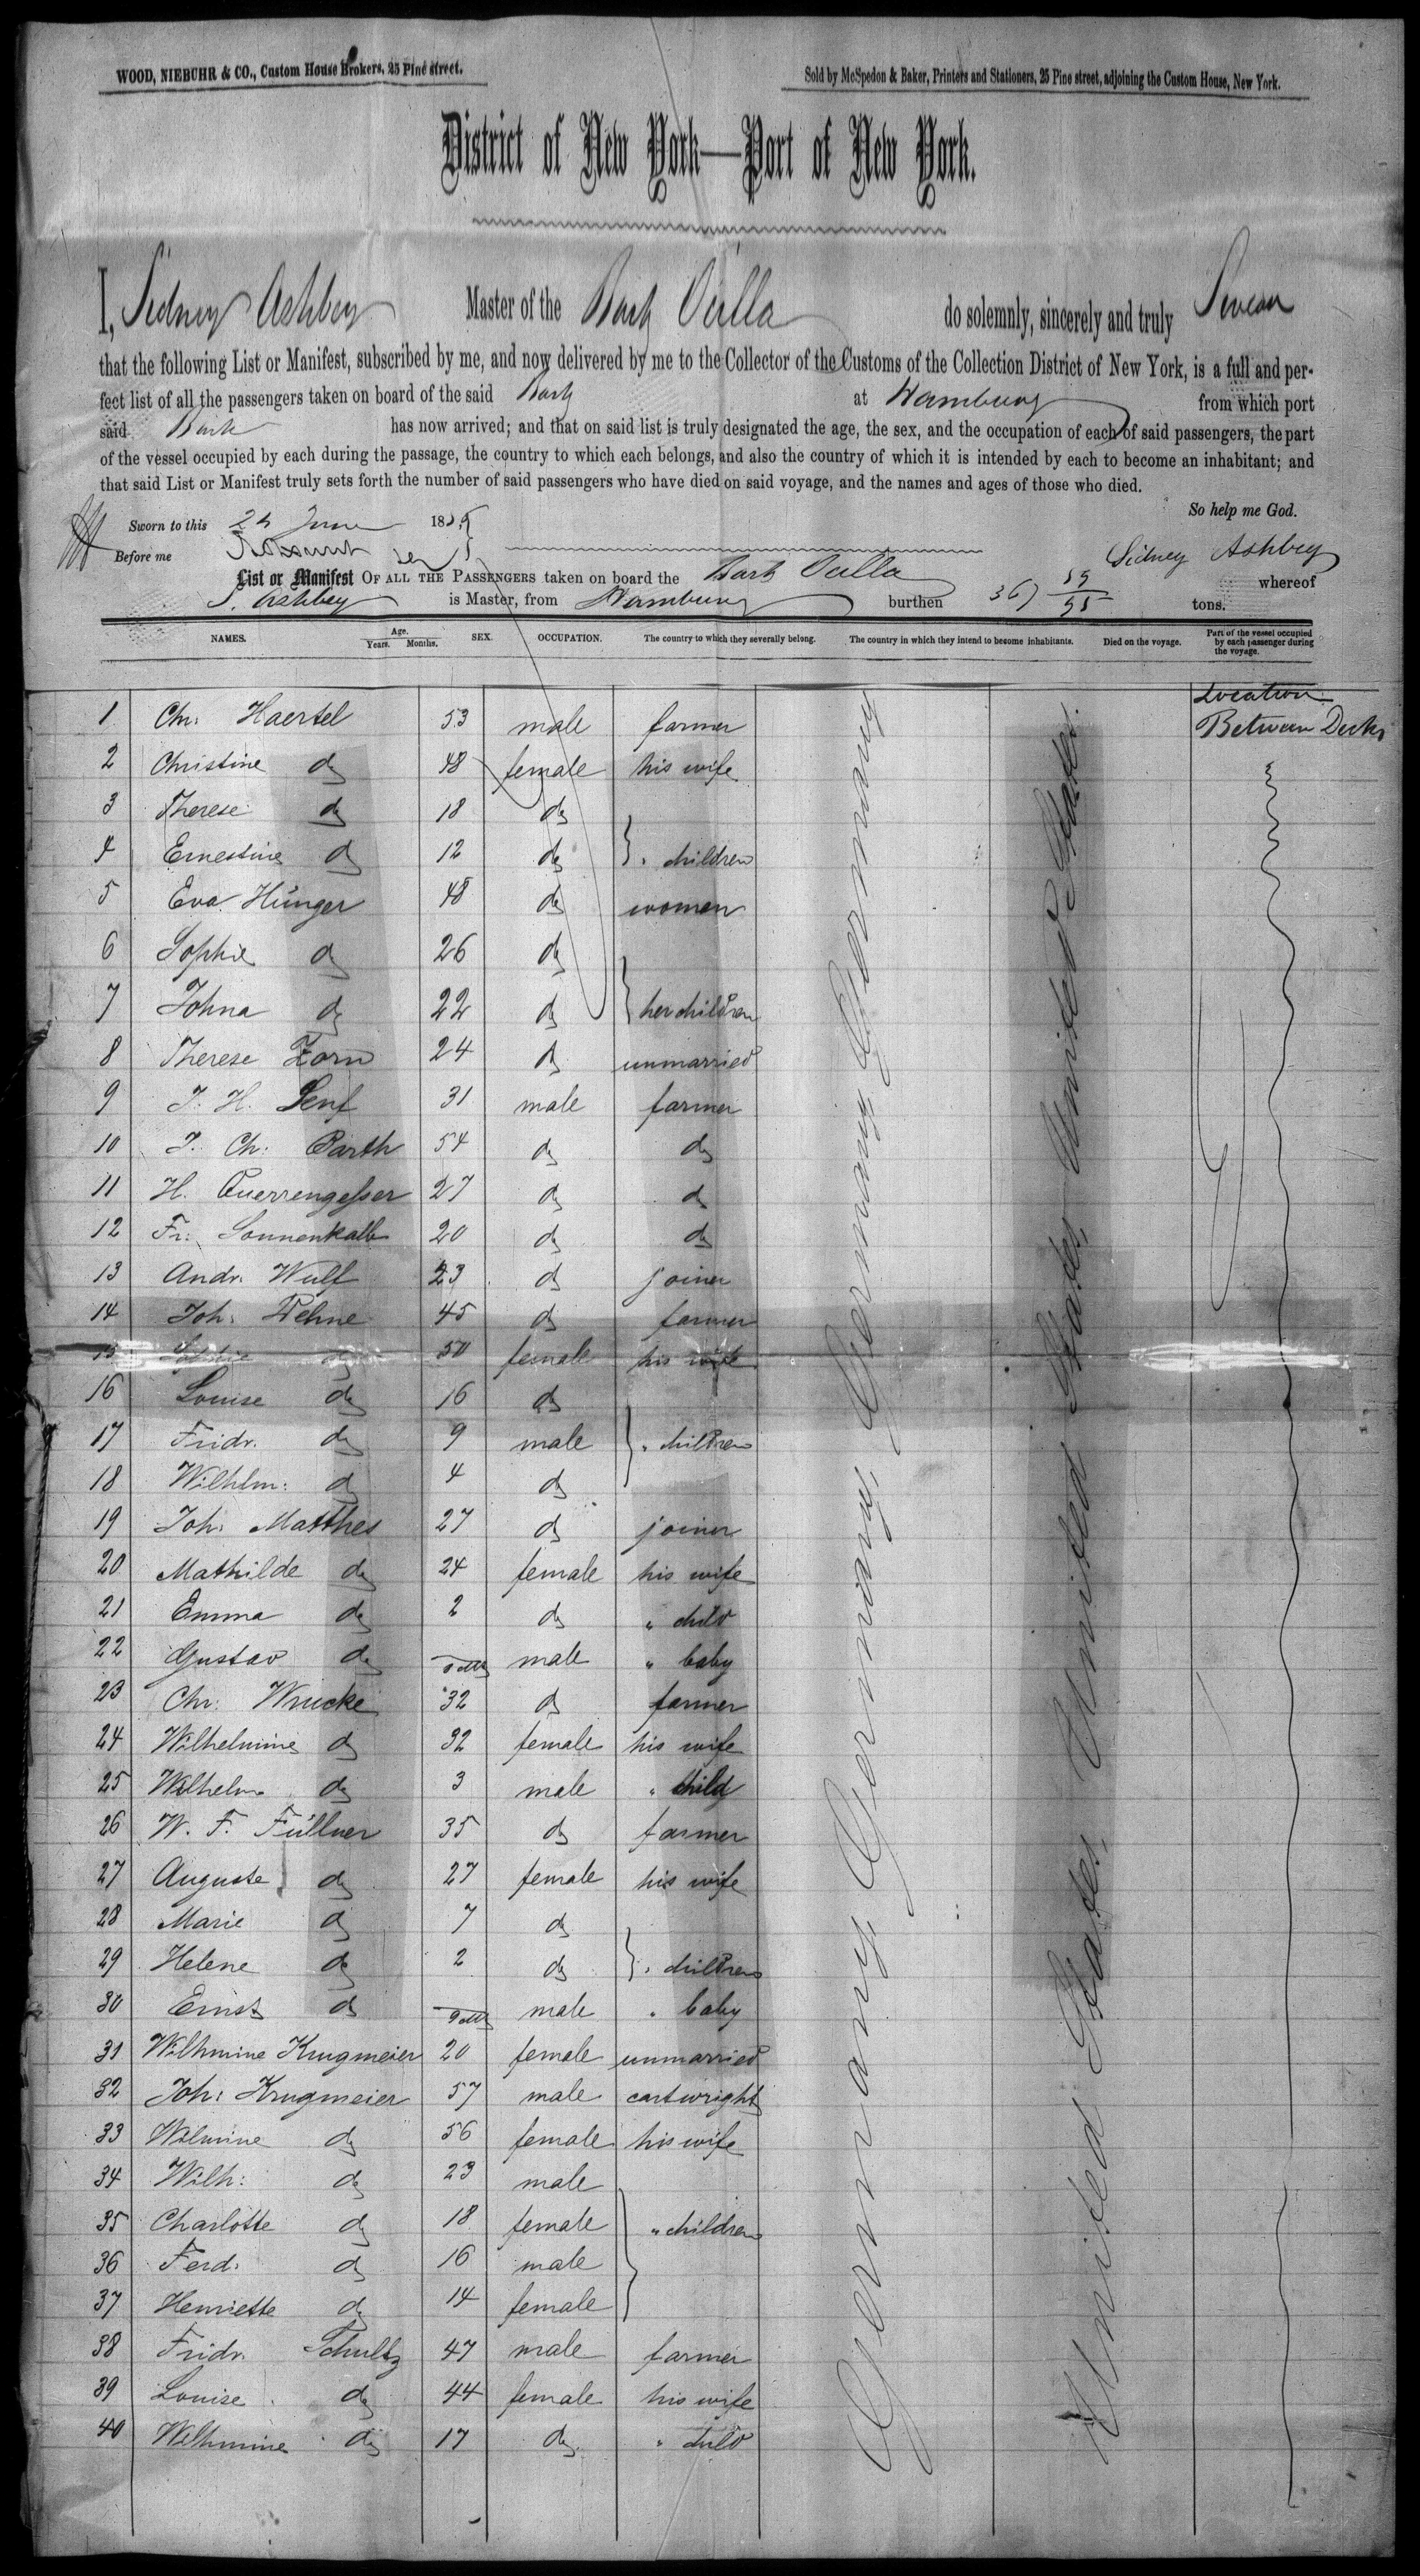 WOOD, NIEBUHR & CO., Custom House Brokers, 25 Pine street.
Sold by McSpedon & Baker, Printers and Stationers, 25 Pine street, adjoining the Custom House, New York.
District of New York—Port of New York.
I, Sidney Ashbey Master of the Bark Oulla do solemnly, sincerely and truly Swear
that the following List or Manifest, subscribed by me, and now delivered by me to the Collector of the Customs of the Collection District of New York, is a full and per-
fect list of all the passengers taken on board of the said Bark at Hamburg from which port
said Bark has now arrived; and that on said list is truly designated the age, the sex, and the occupation of each of said passengers, the part
of the vessel occupied by each during the passage, the country to which each belongs, and also the country of which it is intended by each to become an inhabitant; and
that said List or Manifest truly sets forth the number of said passengers who have died on said voyage, and the names and ages of those who died.
So help me God.
Sworn to this June 185
Before me
Sidney Ashbey
List or Manifest OF ALL THE PASSENGERS taken on board the Bark Oulla whereof
S. Ashbey is Master, from Hamburg burthen 367 tons.
NAMES. Age. Years. Months. SEX. OCCUPATION. The country to which they severally belong. The country in which they intend to become inhabitants. Died on the voyage. Part of the vessel occupied by each passenger during the voyage.
Location
1 Ch: Haertel 53 male farmer Between Decks
2 Christine do 48 female his wife
3 Therese do 18 do
4 Ernestine do 12 do " children
5 Eva Hünger 48 do woman
6 Sophie do 26 do
7 Johna do 22 do her children
8 Therese Zorn 24 do unmarried
9 J. H. Senf 31 male farmer
10 J. Ch: Parth 54 do do
11 H. Querrengesser 27 do do
12 Fr: Sonnenkalb 20 do do
13 Andr. Wulf 23 do joiner
14 Joh: Wehne 45 do farmer
15 do 50 female his wife
16 Louise do 16 do
17 Fridr. do 9 male " children
18 Wilhlm: do 4 do
19 Joh: Matthes 27 do joiner
20 Mathilde do 24 female his wife
21 Emma do 2 do " child
22 Gustav do male " baby
23 Chr: Wrucke 32 do farmer
24 Wilhelmine do 32 female his wife
25 Wilhelm do 3 male " child
26 W. F. Füllner 35 do farmer
27 Auguste do 27 female his wife
28 Marie do 7 do
29 Helene do 2 do " children
30 Ernst do male " baby
31 Wilhmine Krugmeier 20 female unmarried
32 Joh: Krugmeier 57 male cartwright
33 Wilmine do 56 female his wife
34 Wilh: do 23 male
35 Charlotte do 18 female " children
36 Ferd: do 16 male
37 Henriette do 14 female
38 Fridr. Schultz 47 male farmer
39 Louise do 44 female his wife
40 Wilhmine do 17 do " child
Germany, Germany, Germany, Germany
United States, United States, United States